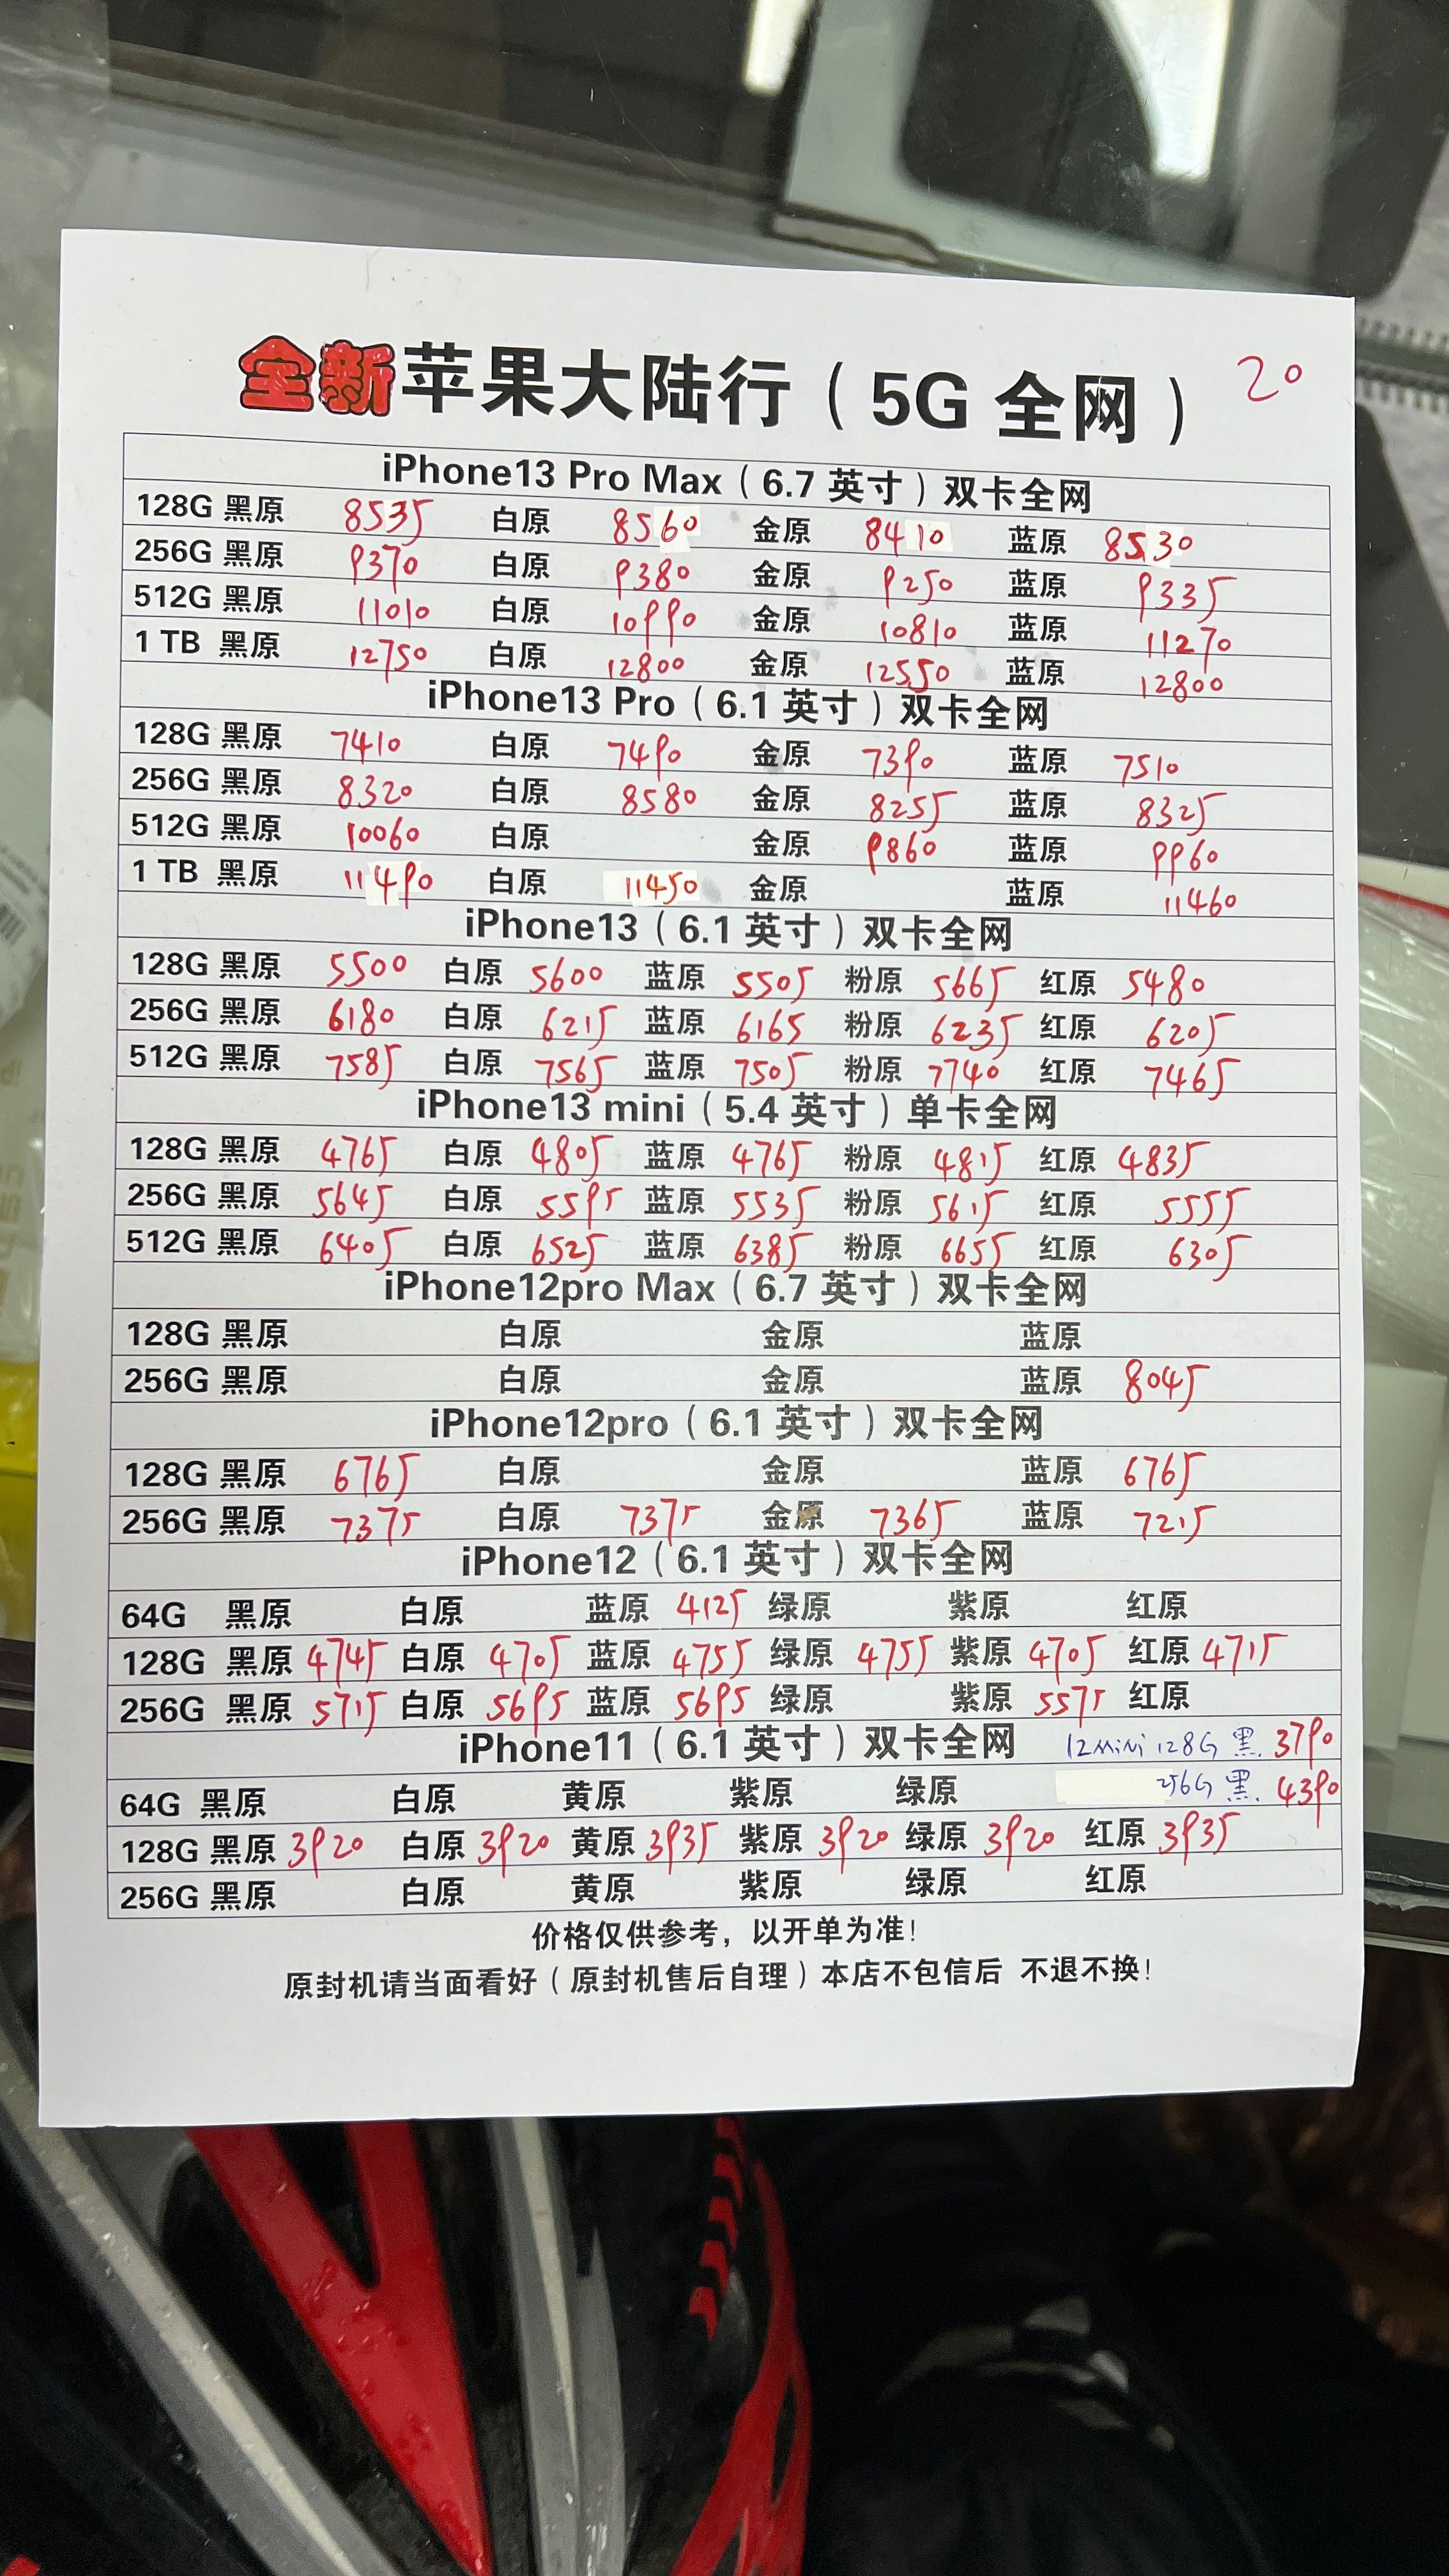 全新苹果大陆行（5G 全网） 20
iPhone13 Pro Max（6.7 英寸）双卡全网
128G 黑原 8535 白原 8560 金原 8410 蓝原 8530
256G 黑原 9370 白原 9380 金原 9250 蓝原 9335
512G 黑原 11010 白原 10990 金原 10810 蓝原 11270
1 TB 黑原 12750 白原 12800 金原 12550 蓝原 12800
iPhone13 Pro（6.1 英寸）双卡全网
128G 黑原 7410 白原 7490 金原 7390 蓝原 7510
256G 黑原 8320 白原 8580 金原 8255 蓝原 8325
512G 黑原 10060 白原 金原 9860 蓝原 9960
1 TB 黑原 11490 白原 11450 金原 蓝原 11460
iPhone13（6.1 英寸）双卡全网
128G 黑原 5500 白原 5600 蓝原 5505 粉原 5665 红原 5480
256G 黑原 6180 白原 6215 蓝原 6165 粉原 6235 红原 6205
512G 黑原 7585 白原 7565 蓝原 7505 粉原 7740 红原 7465
iPhone13 mini（5.4 英寸）单卡全网
128G 黑原 4765 白原 4805 蓝原 4765 粉原 4815 红原 4835
256G 黑原 5645 白原 5595 蓝原 5535 粉原 5615 红原 5555
512G 黑原 6405 白原 6525 蓝原 6385 粉原 6655 红原 6305
iPhone12pro Max（6.7 英寸）双卡全网
128G 黑原 白原 金原 蓝原
256G 黑原 白原 金原 蓝原 8045
iPhone12pro（6.1 英寸）双卡全网
128G 黑原 6765 白原 金原 蓝原 6765
256G 黑原 7375 白原 7375 金原 7365 蓝原 7215
iPhone12（6.1 英寸）双卡全网
64G 黑原 白原 蓝原 4125 绿原 紫原 红原
128G 黑原 4745 白原 4705 蓝原 4755 绿原 4755 紫原 4705 红原 4715
256G 黑原 5715 白原 5695 蓝原 5695 绿原 紫原 5575 红原
iPhone11（6.1 英寸）双卡全网 12mini 128G 黑. 3790
64G 黑原 白原 黄原 紫原 绿原 256G 黑. 4390
128G 黑原 3920 白原 3920 黄原 3935 紫原 3920 绿原 3920 红原 3935
256G 黑原 白原 黄原 紫原 绿原 红原
价格仅供参考，以开单为准！
原封机请当面看好（原封机售后自理）本店不包信后 不退不换！